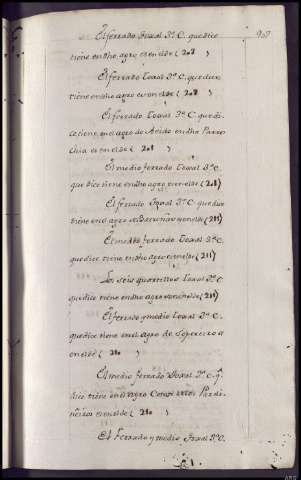 El ferrado Toxal 3ª C. que dice
tiene en dho agro es en el de (208)
El ferrado Toxal 3ª C. que dice
tiene en dho agro es en el de (208)
El ferrado Toxal 3ª C. que di-
ce tiene en el agro de en dha Parro
chia es en el de (201)
El medio ferrado Toxal 3ª C.
que dice tiene en dho agro es en el de (211)
El ferrado Toxal 3ª C. que dice
tiene en el agro de es en el de (211)
El medio ferrado Toxal 3ª C.
que dice tiene en dho agro es en el de (211)
Los seis quartillos Toxal 3ª C.
que dice tiene en dho agro es en el de (211)
El ferrado y medio Toxal 3ª C.
que dice tiene en el agro de es
en el de (210
El medio ferrado Toxal 3ª C. q.
dice tiene en el agro Pardi
ñeiros es en el de (210)
El Ferrado y medio Toxal 3ª C.